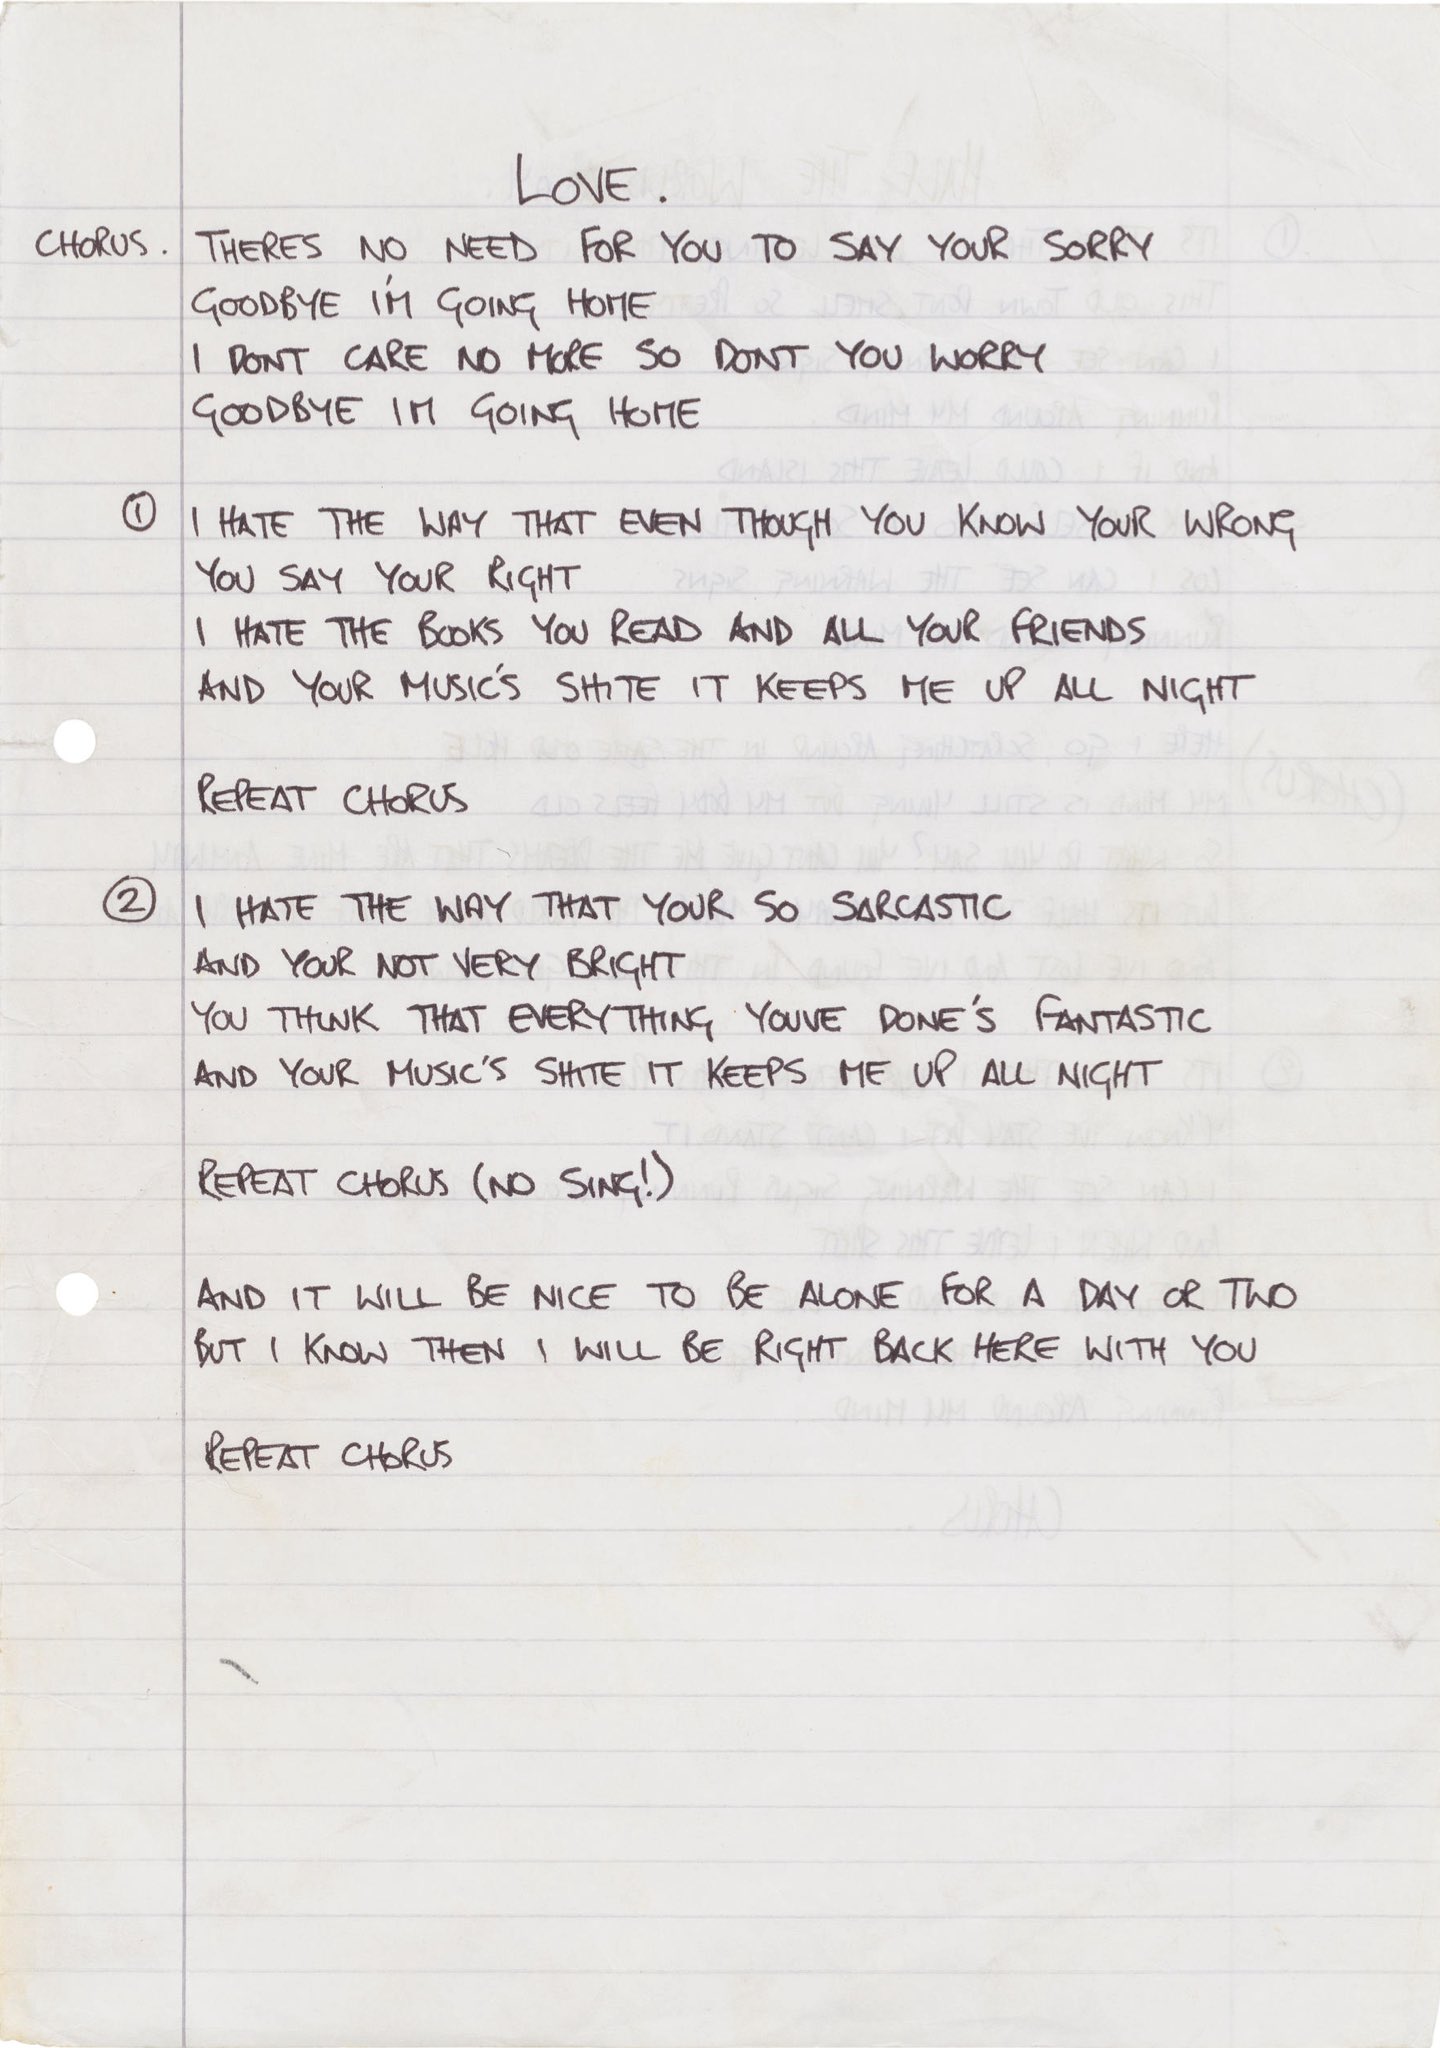 LOVE.
CHORUS. THERES NO NEED FOR YOU TO SAY YOUR SORRY
GOODBYE I'M GOING HOME
I DONT CARE NO MORE SO DONT YOU WORRY
GOODBYE IM GOING HOME
① I HATE THE WAY THAT EVEN THOUGH YOU KNOW YOUR WRONG
YOU SAY YOUR RIGHT
I HATE THE BOOKS YOU READ AND ALL YOUR FRIENDS
AND YOUR MUSIC'S SHITE IT KEEPS ME UP ALL NIGHT
REPEAT CHORUS
② I HATE THE WAY THAT YOUR SO SARCASTIC
AND YOUR NOT VERY BRIGHT
YOU THINK THAT EVERYTHING YOUVE DONE'S FANTASTIC
AND YOUR MUSIC'S SHITE IT KEEPS ME UP ALL NIGHT
REPEAT CHORUS (NO SING!)
AND IT WILL BE NICE TO BE ALONE FOR A DAY OR TWO
BUT I KNOW THEN I WILL BE RIGHT BACK HERE WITH YOU
REPEAT CHORUS